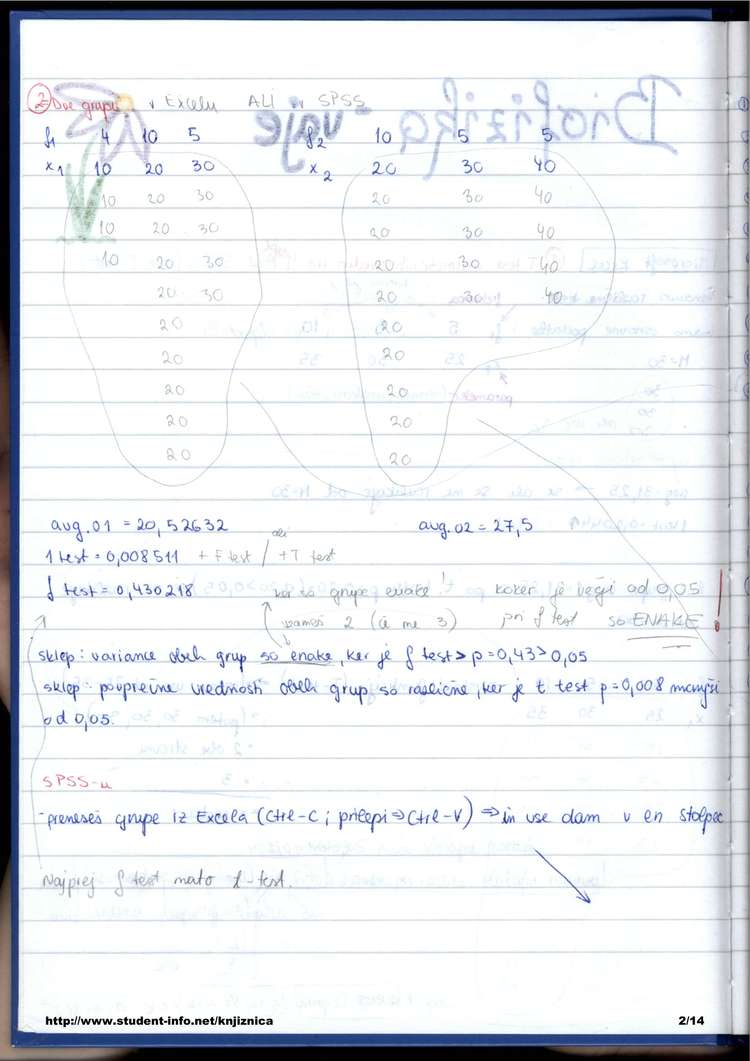 2 Dve grupi v Excelu ALI v SPSS
f1 4 10 5 f2 10 5 5
x1 10 20 30 x2 20 30 40
10 20 30 20 30 40
10 20 30 20 30 40
10 20 30 20 30 40
20 30 20 30 40
20 20
20 20
20 20
20 20
20 20
avg. 01 = 20,52632 avg. 02 = 27,5
ali
T test = 0,008511 + F test / + T test
f test = 0,430218 ker so grupe enake! koker je večji od 0,05!
vzameš 2 (če ne 3) pri f test so ENAKE
sklep: variance obeh grup so enake, ker je f test > p = 0,43 > 0,05
sklep: povprečne vrednosti obeh grup so različne, ker je t test p = 0,008 manjši
od 0,05.
SPSS-u
- preneseš grupe iz Excela (Ctrl-C; prilepi ⇒ Ctrl-V) ⇒ in vse dam v en stolpec
Najprej f test nato t-test.
http://www.student-info.net/knjiznica 2/14